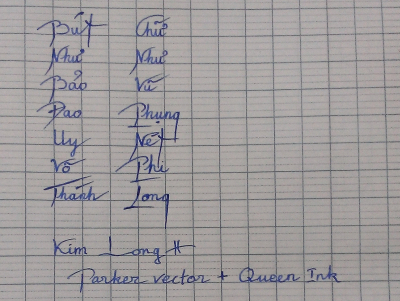 Bút Chữ
Như Như
Bảo Vũ
Đao Phụng
Uy Nét
Võ Phi
Thành Long
Kim Long H
Parker vector + Queen Ink